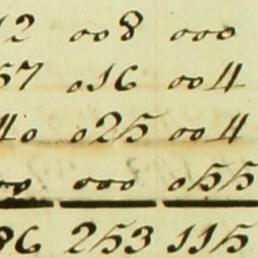 12 008 000
57 016 004
40 025 004
00 000 055
86 253 115